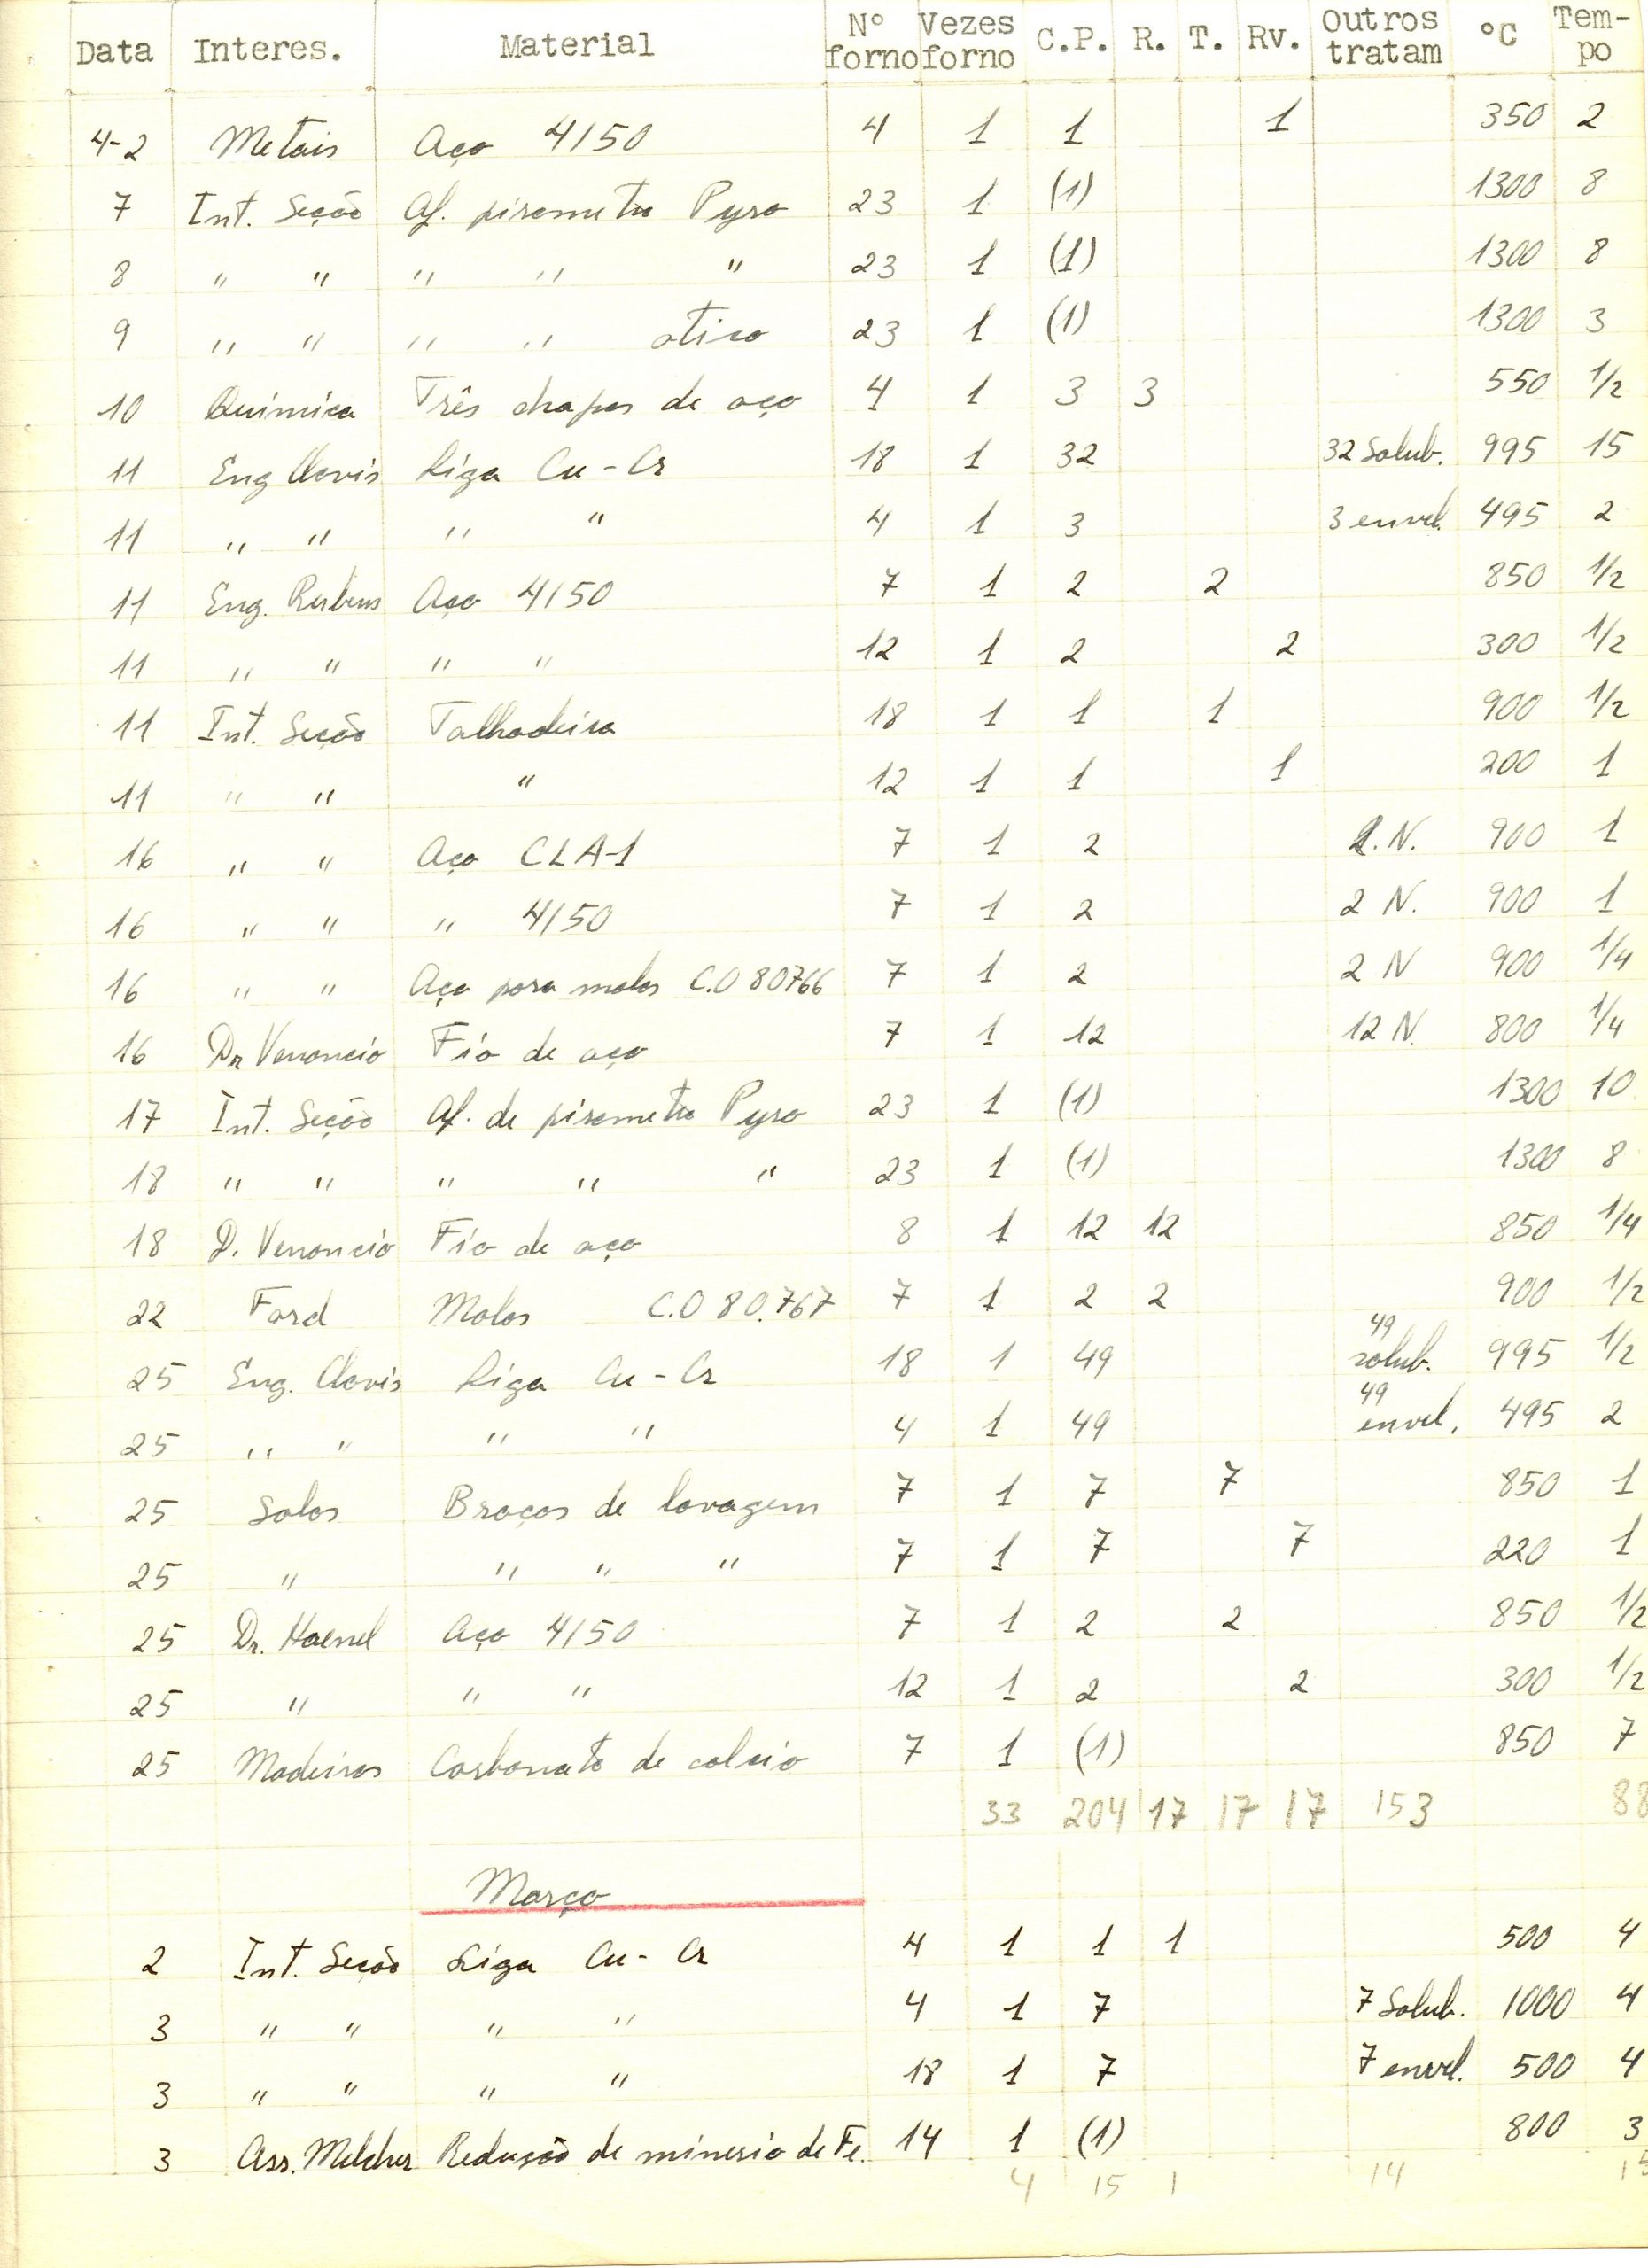 Data Interes. Material Nº forno Vezes forno C.P. R. T. Rv. Outros tratam ºC Tem-po
4-2 Metais Aço 4150 4 1 1 1 350 2
7 Int. Seção Af. pirometro Pyro 23 1 (1) 1300 8
8 " " " " " 23 1 (1) 1300 8
9 " " " " otico 23 1 (1) 1300 3
10 Quimica Três chapas de aço 4 1 3 3 550 1/2
11 Eng Clovis Liga Cu - Cr 18 1 32 32 Solub. 995 15
11 " " " " 4 1 3 3 envel. 495 2
11 Eng. Rubens Aço 4150 7 1 2 2 850 1/2
11 " " " " 12 1 2 2 300 1/2
11 Int. Seção Talhadeira 18 1 1 1 900 1/2
11 " " " 12 1 1 1 200 1
16 " " Aço CLA-1 7 1 2 2.N. 900 1
16 " " " 4150 7 1 2 2 N. 900 1
16 " " Aço para molas C.O 80766 7 1 2 2 N 900 1/4
16 Dr Venancio Fio de aço 7 1 12 12 N. 800 1/4
17 Int. Seção Af. de pirometro Pyro 23 1 (1) 1300 10
18 " " " " " 23 1 (1) 1300 8
18 D. Venancio Fio de aço 8 1 12 12 850 1/4
22 Ford Molas C.O 80.767 7 1 2 2 900 1/2
25 Eng. Clovis Liga Cu - Cr 18 1 49 49 solub. 995 1/2
25 " " " " 4 1 49 49 envel. 495 2
25 Solos Braços de lavagem 7 1 7 7 850 1
25 " " " " 7 1 7 7 220 1
25 Dr. Haenel Aço 4150 7 1 2 2 850 1/2
25 " " " 12 1 2 2 300 1/2
25 Madeiras Carbonato de calcio 7 1 (1) 850 7
33 204 17 17 17 153 88
Março
2 Int. Seção Liga Cu - Cr 4 1 1 1 500 4
3 " " " " 4 1 7 7 Solub. 1000 4
3 " " " " 18 1 7 7 envel. 500 4
3 Ass. Melcher Redução de minerio de Fe. 14 1 (1) 800 3
4 15 1 14 15